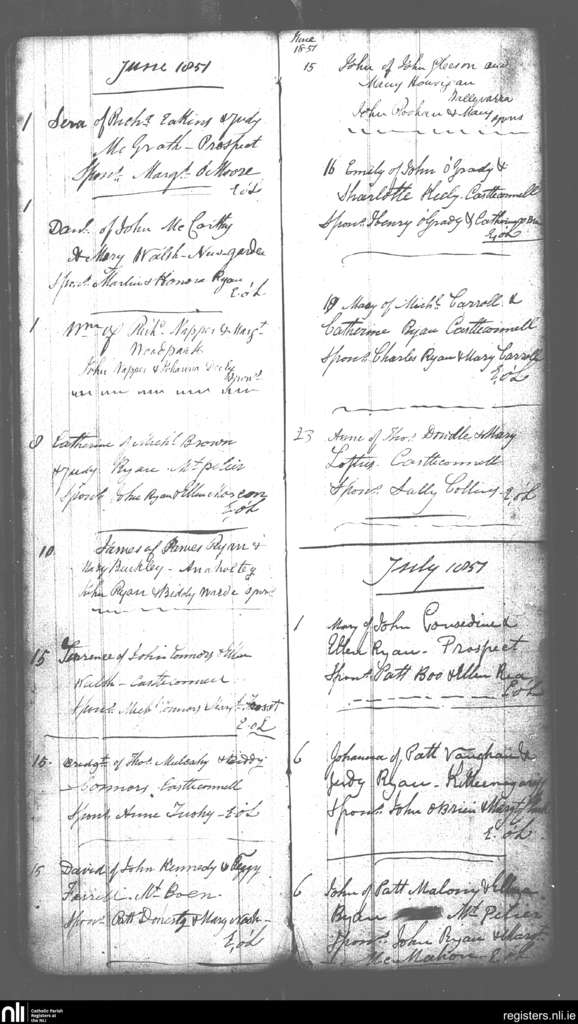 June 1851
1 Sera of Richd. Eakins & Judy
McGrath - Prospect
Spons. Margt. Moore
E,O'L
1 Danl. of John McCarthy
& Mary Walsh - Newgarden
Spons. Martin & Honora Ryan
E,O'L
1 Wm of Richd. Napper & Margt.
Woodpark
John Napper & Johanna
Spons.
8 Catherine of Michl Brown
& Judy Ryan Mt pelier
Spons. John Ryan & Ellen
E,O'L
10 James of James Ryan &
Mary Buckley - Anaholty
John Ryan & Biddy Warde spons
15 Terrence of John Connors & Ellen
Walsh - Castleconnell
Spons. Michl Connors & Margt.
E,O'L
15. Bridgt. of Thos. Mulcahy & Biddy
Connors Castleconnell
Spons Anne Tuohy - E,O'L
15 David of John Kennedy & Peggy
Farrell Mt.
Spons. Patt & Mary
E,O'L
June
1851
15 John of John Gleeson and
Mary Hourigan
John & Mary
Spons
16 Emily of John O'Grady &
Sharlotte Keely. Castleconnell
Spons. Henry O'Grady & Catherine
E,O'L
19 Mary of Michl. Carroll &
Catherine Ryan Castleconnell
Spons. Charles Ryan & Mary Carroll
E,O'L
23 Anne of Thos. Dowdle & Mary
Loftus. Castleconnell
Spons. Sally Collins - E,O'L
July 1851
1 Mary of John Consedine &
Ellen Ryan - Prospect
Spons. Patt Boo & Ellen Rea
E,O'L
6 Johanna of Patt Vaughan &
Judy Ryan -
Spons. John O'Brien & Margt
E. O'L
6 John of Patt Malony &
Ryan Mt Pelier
Spons. John Ryan & Margt.
McMahon - E,O'L
nli
Catholic Parish
Registers at
the NLI
registers.nli.ie